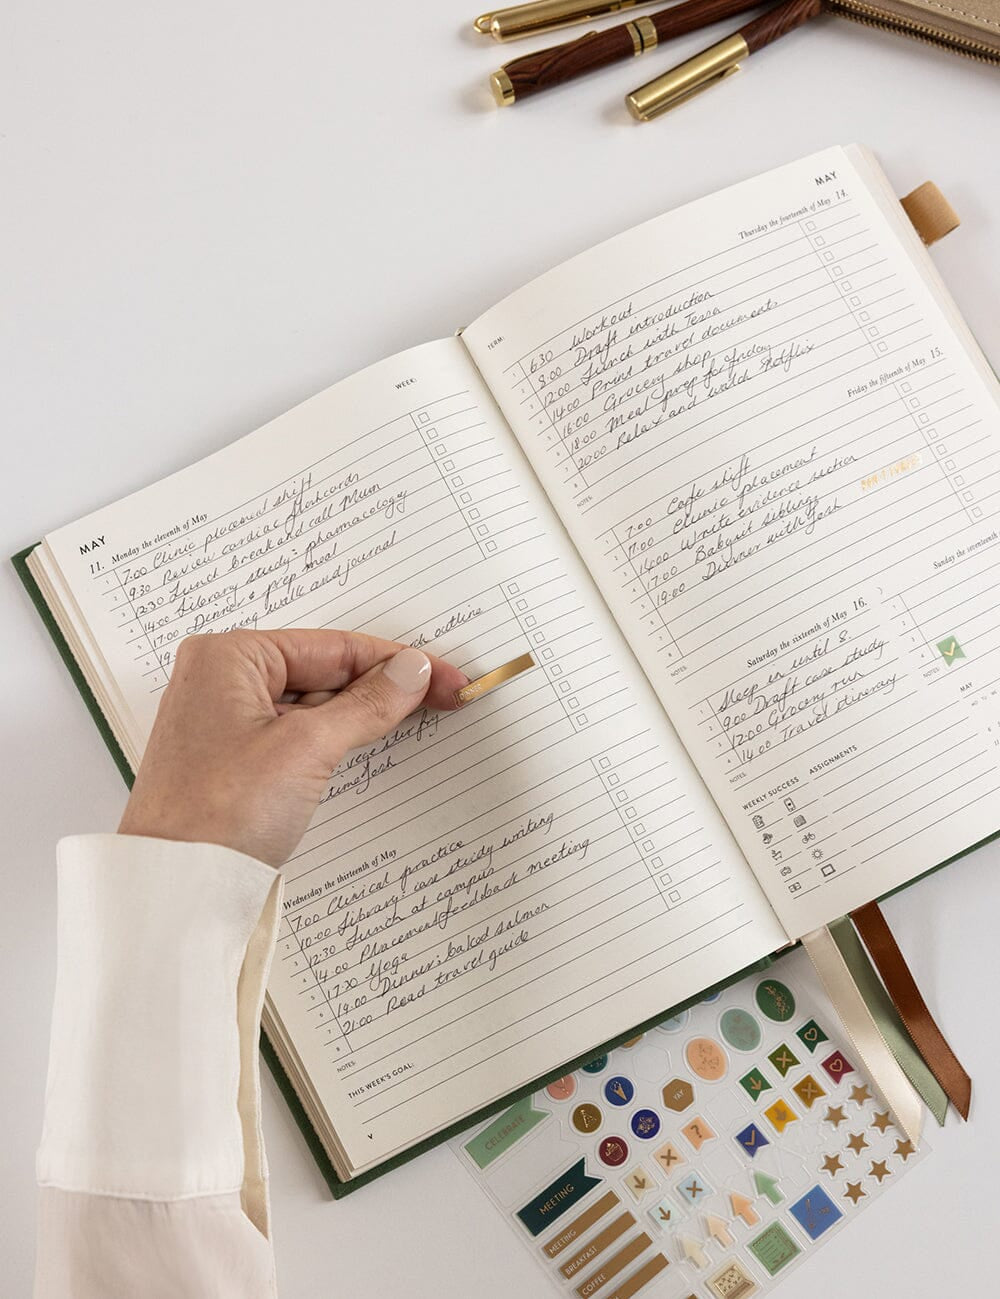 WEEK:
MAY
11. Monday the eleventh of May
1 7:00 Clinic placement shift
2 9:30 Review cardiac flashcards
3 12:30 Lunch break and call Mum
4 14:00 Library study: pharmacology
5 17:00 Dinner & prep meal
6 19: Evening walk and journal
outline
DINNER
Wednesday the thirteenth of May
1 7:00 Clinical practice
2 10:00 Library: case study writing
3 12:30 Lunch at campus
4 14:00 Placement feedback meeting
5 17:30 Yoga
6 19:00 Dinner: baked salmon
7 21:00 Read travel guide
8
NOTES:
THIS WEEK'S GOAL:
MAY
Thursday the fourteenth of May 14.
TERM:
1 6:30 Workout
2 8:00 Draft introduction
3 12:00 Lunch with Tessa
4 14:00 Print travel documents
5 16:00 Grocery shop
6 18:00 Meal prep for Friday
7 20:00 Relax and watch Netflix
8
NOTES:
Friday the fifteenth of May 15.
1 7:00 Cafe shift
2 11:00 Clinic placement
3 14:00 Write evidence section
4 17:00 Babysit siblings
5 19:00 Dinner with Josh
6
7
8
NOTES:
Saturday the sixteenth of May 16.
1 Sleep in until 8.
2 9:00 Draft case study
3 12:00 Grocery run
4 14:00 Travel itinerary
NOTES:
Sunday the seventeenth
NOTES:
WEEKLY SUCCESS
ASSIGNMENTS
MAY
CELEBRATE
YAY
MEETING
MEETING
BREAKFAST
COFFEE